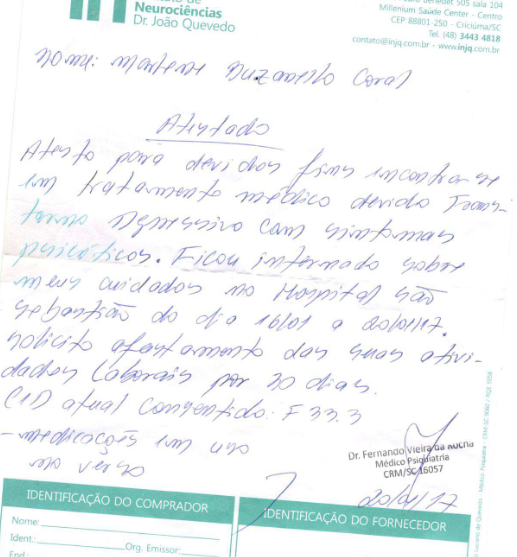 de
Neurociências
Dr. João Quevedo
Benedet 505 sala 104
Millenium Saúde Center - Centro
CEP 88801-250 - Criciúma/SC
Tel. (48) 3443 4818
contato@injq.com.br - www.injq.com.br
Nome: Marlene Buzanello Coral
Atestado
Atesto para devidos fins encontrar-se
em tratamento médico devido Trans-
torno Depressivo com sintomas
psicóticos. Ficou internado sobre
meus cuidados no Hospital São
Sebastião do dia 16/01 a 20/01/17.
Solicito afastamento das suas ativi-
dades laborais por 30 dias.
CID atual consentido: F 33.3
- medicações em uso
no verso
Dr. Fernando Vieira da Rocha
Médico Psiquiatria
CRM/SC 16057
20/01/17
IDENTIFICAÇÃO DO COMPRADOR
IDENTIFICAÇÃO DO FORNECEDOR
Nome:
Ident.: Org. Emissor:
End.: